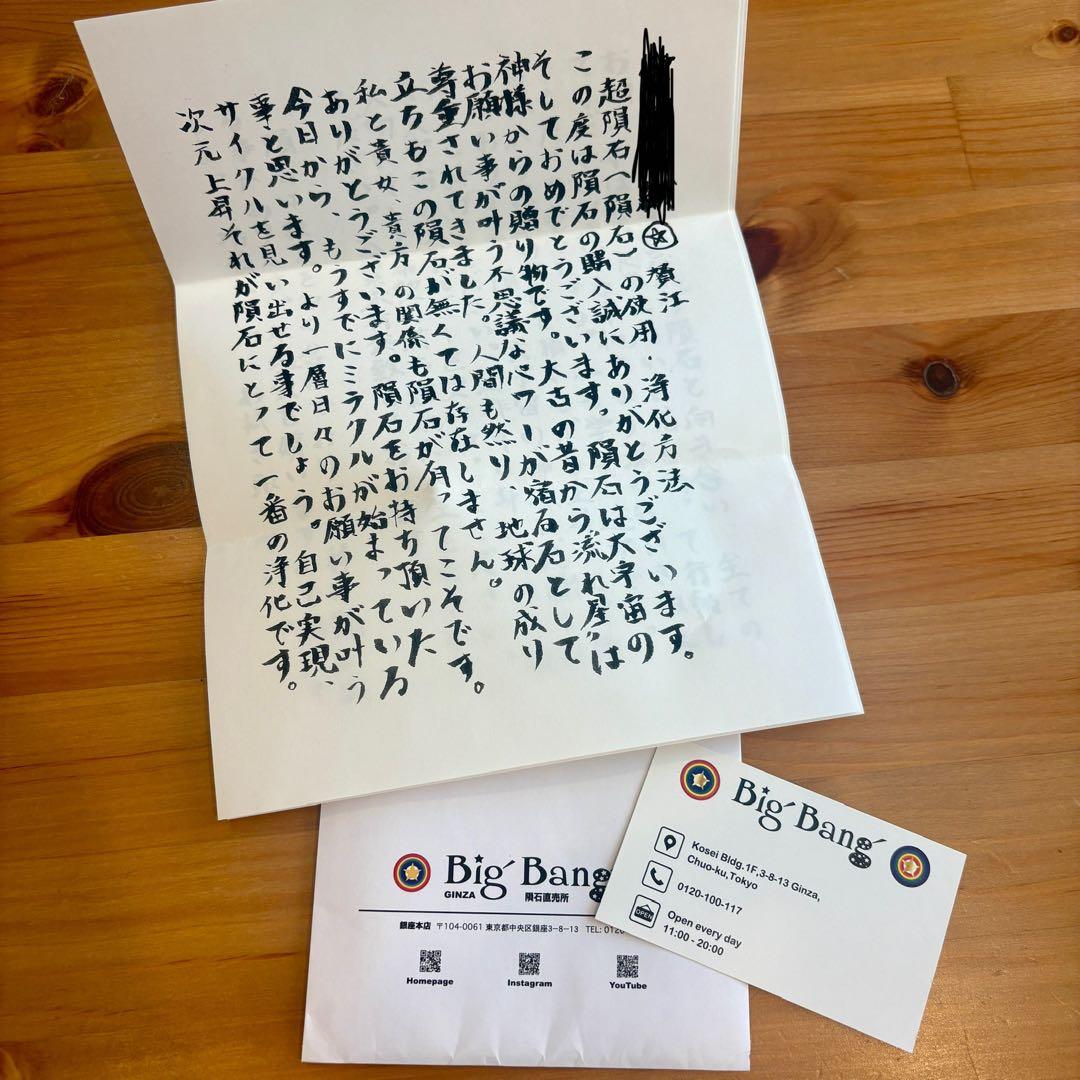 超隕石(隕石)の使用・浄化方法
この度は隕石の購入誠にありがとうございます。
そしておめでとうございます。隕石は大宇宙の
神様からの贈り物です。大古の昔から流れ星は
お願い事が叶う不思議なパワーが宿る石として
尊重されてきました。人間も然り、地球の成り
立ちもこの隕石が無くては存在しません。
私と貴女、貴方の関係も隕石が有ってこそです。
ありがとうございます。隕石をお持ち頂いた
今日から、もうすでにミラクルが始まっている
事と思います。より一層日々のお願い事が叶う
サイクルを見い出せる事でしょう。自己実現、
次元上昇それが隕石にとって一番の浄化です。
Big Bang
GINZA 隕石直売所
銀座本店 〒104-0061 東京都中央区銀座3-8-13 TEL: 0120
Homepage Instagram YouTube
Big Bang
Kosei Bldg.1F,3-8-13 Ginza,
Chuo-ku,Tokyo
0120-100-117
OPEN
Open every day
11:00 - 20:00